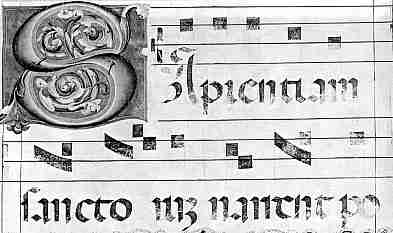 SApientiam
sancto ꝝ narrent po